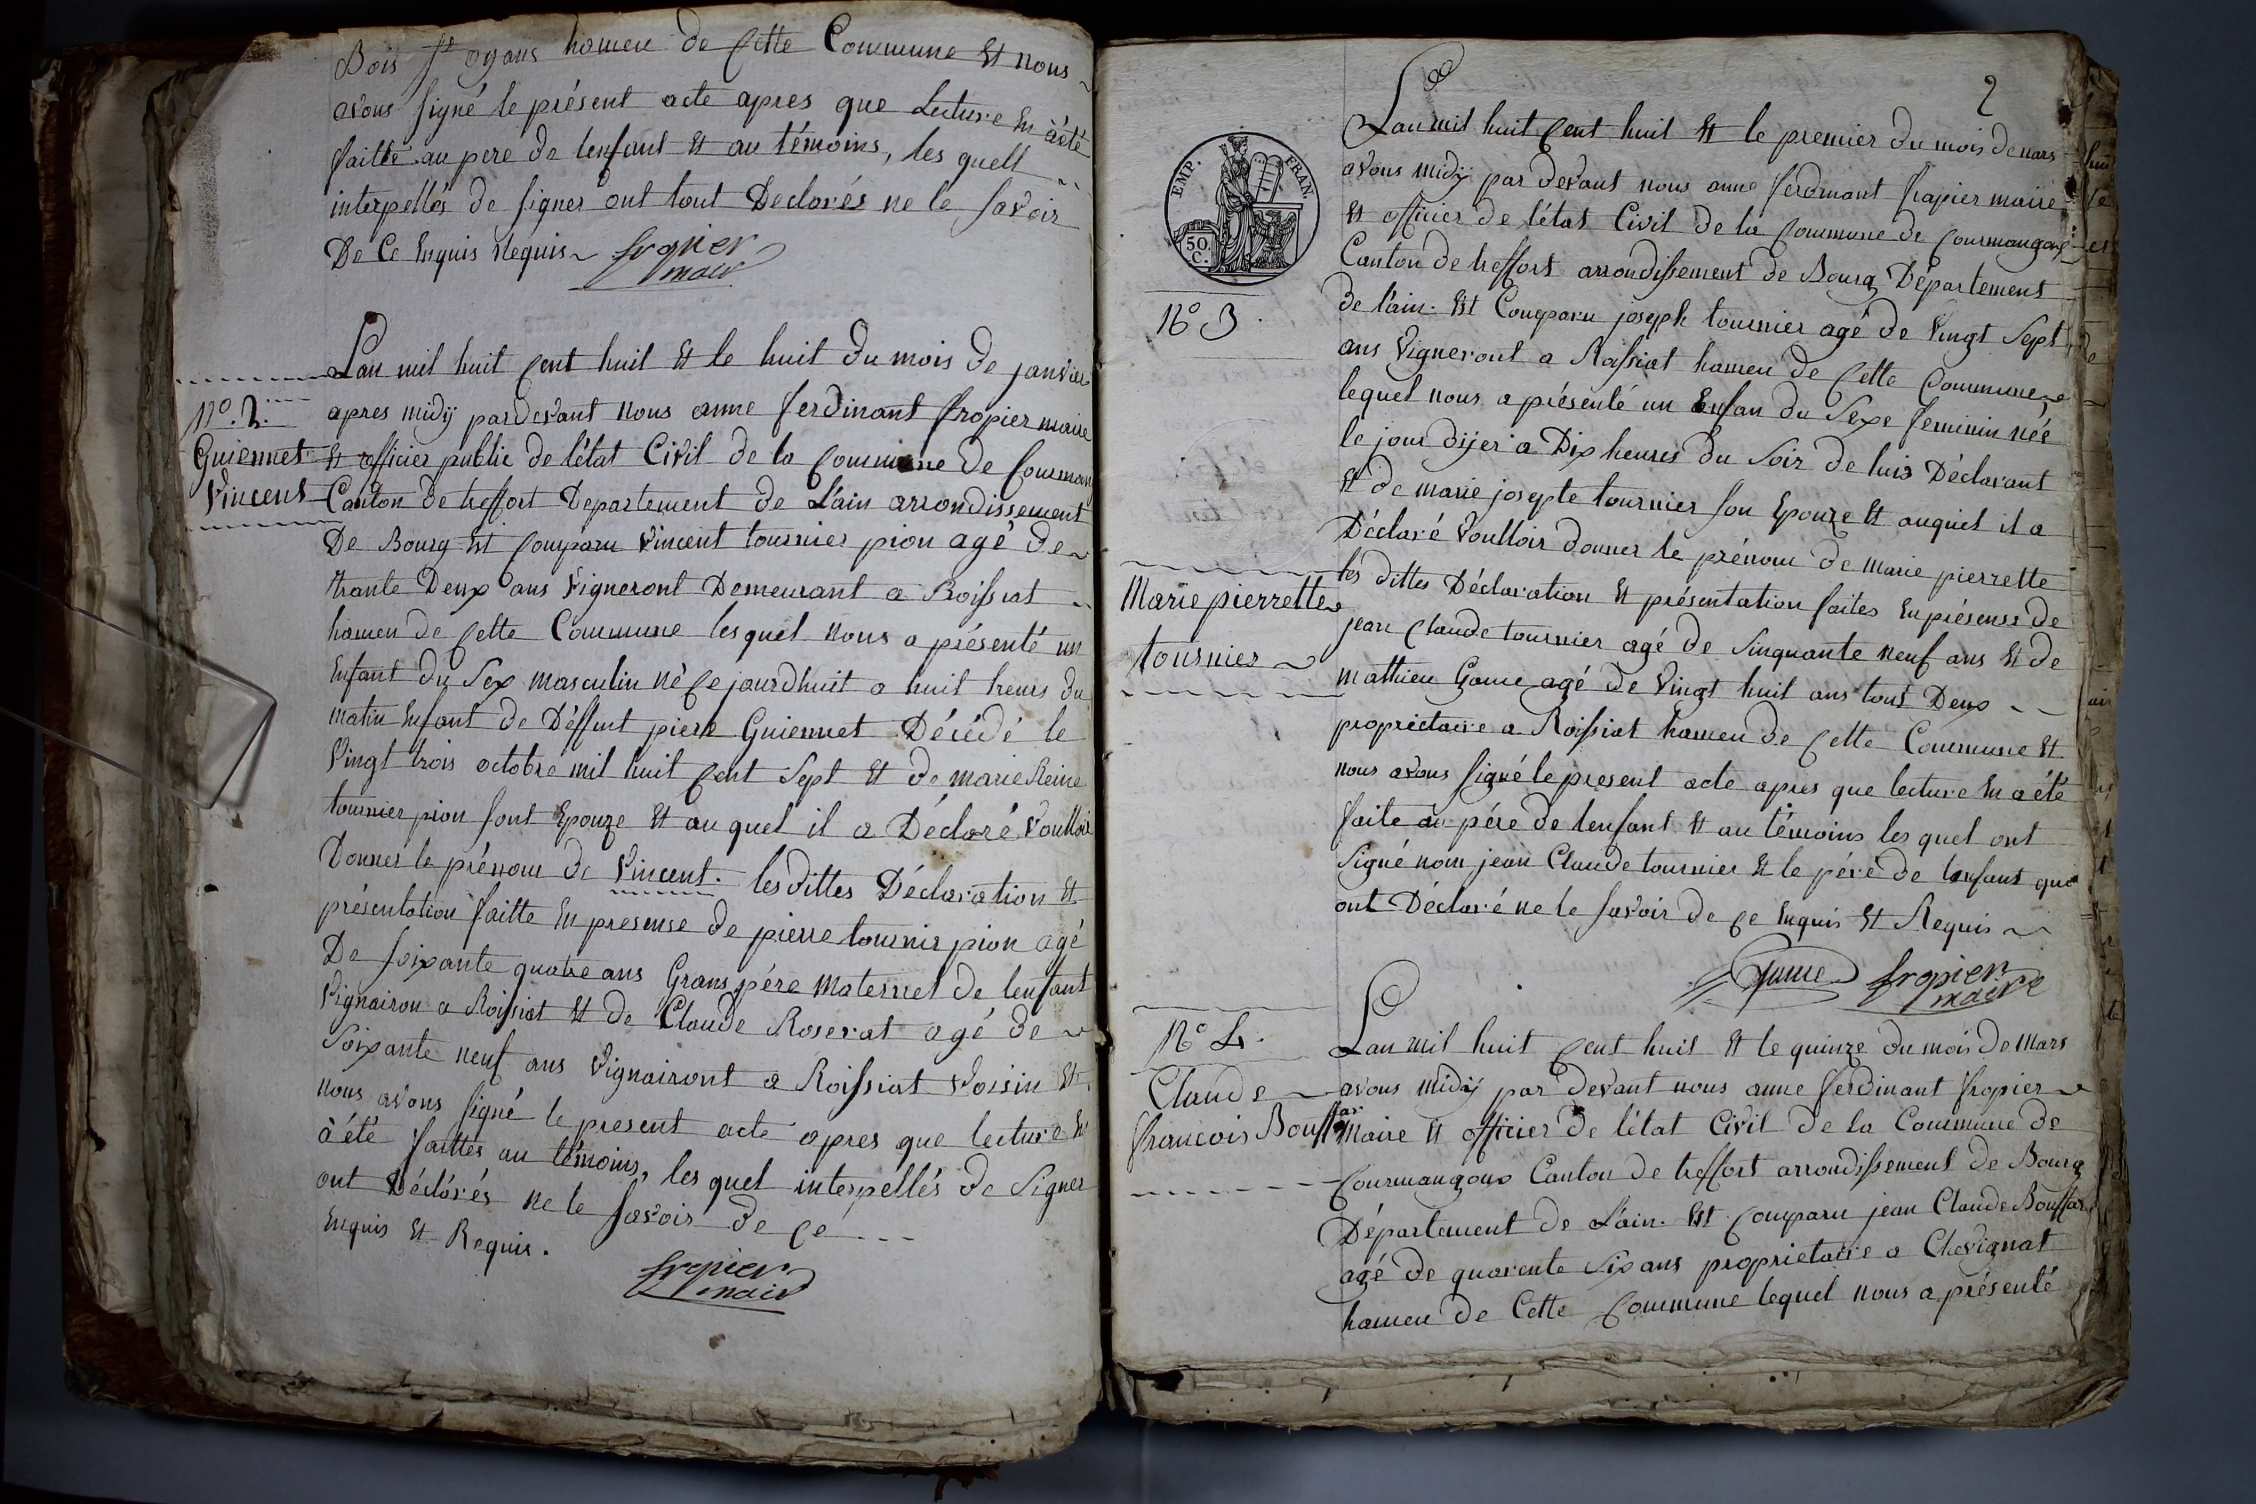 Bois St oyans hameu de Cette Commune Et nous
avons signé le présent acte apres que Lecture En àété
faitte au pere de lenfant Et au témoins, les quell
interpellés de signer ont tout Declarés ne le savoir
De Ce Enquis Requis
fropier
maire
Lan mil huit Cent huit Et le huit Du mois de janvier
No. 2.
apres midÿ pardevant nous anne ferdinant fropier maire
Guiennet
Et officier public de létat Civil de la Commune De Courman
Vincent
Canton de treffort Departement de L'ain arrondissement
De Bourg Est Comparu Vincent tournier pion agé de
trante Deux ans Vigneront Demeurant a Roissiat
hameu de Cette Commune lesquel nous a présenté un
Enfant du Sex masculin nè Ce jourdhuit a huit heurs du
matin Enfant de Déffunt piere Guiennet Décédé le
Vingt trois octobre mil huit Cent Sept Et de marie Reine
tournier pion sont Epouze Et au quel il a Déclaré Voulloir
Donner le prénom de Vincent. les dittes Déclaration Et
présentation faitte En presense de pierre tournir pion agé
De soixante quatre ans Grans pére maternel de lenfant
Vignairon a Roissiat Et de Claude Roserat agé de
Soixante neuf ans Vignairont a Roissiat Voisin Et
nous avons signé le present acte apres que lecture En
à été faittes au témoins, les quel interpellés de Signer
ont Déclórés ne le savoir de Ce
Enquis Et Requis.
fropier
maire
2
EMP. FRAN.
50. C.
Lan mil huit Cent huit Et le premier du mois de mars
avons midÿ par devant nous anne ferdinant frapier maire
Et officier de létat Civil de la Commune de Courmangoux
Canton de treffort arrondissement de Bourg Département
No 3.
de l'ain. Est Comparu joseph tournier agé de Vingt Sept
ans Vigneront a Roissiat hameu de Cette Commune
lequel nous a présenté un Enfan du Sexe feminin née
le jour dijer a Dix heures du Soir de luis Déclarant
Et de marie josepte tournier son Epouze Et auquel il a
Déclaré Voulloir donner le prénom de marie pierrette
Marie pierrette
tournier
les dittes Déclaration Et présentation faites En présense de
jean Claude tournier agé de Sinquante neuf ans Et de
mathieu Game agé de Vingt huit ans tout Deux
proprietaire a Roissiat hameu de Cette Commune Et
nous avons signé le present acte apres que lecture En a été
faite au pére de lenfant Et au témoins les quel ont
Signé non jean Claude tournier Et le pére de lenfant qui
ont Déclaré ne le savoir de Ce Enquis Et Requis
Game fropier
maire
No 4.
Lan mil huit Cent huit Et le quinze du mois de mars
Claude
avons midÿ par devant nous anne ferdinant fropier
francois Bouffar
maire Et officier de létat Civil de la Commune de
Courmangoux Canton de treffort arrondissement de Bourg
Département de L'ain. Est Comparu jean Claude Bouffar
agé de quarente Six ans proprietaire a Chevignat
hameu de Cette Commune lequel nous a présenté